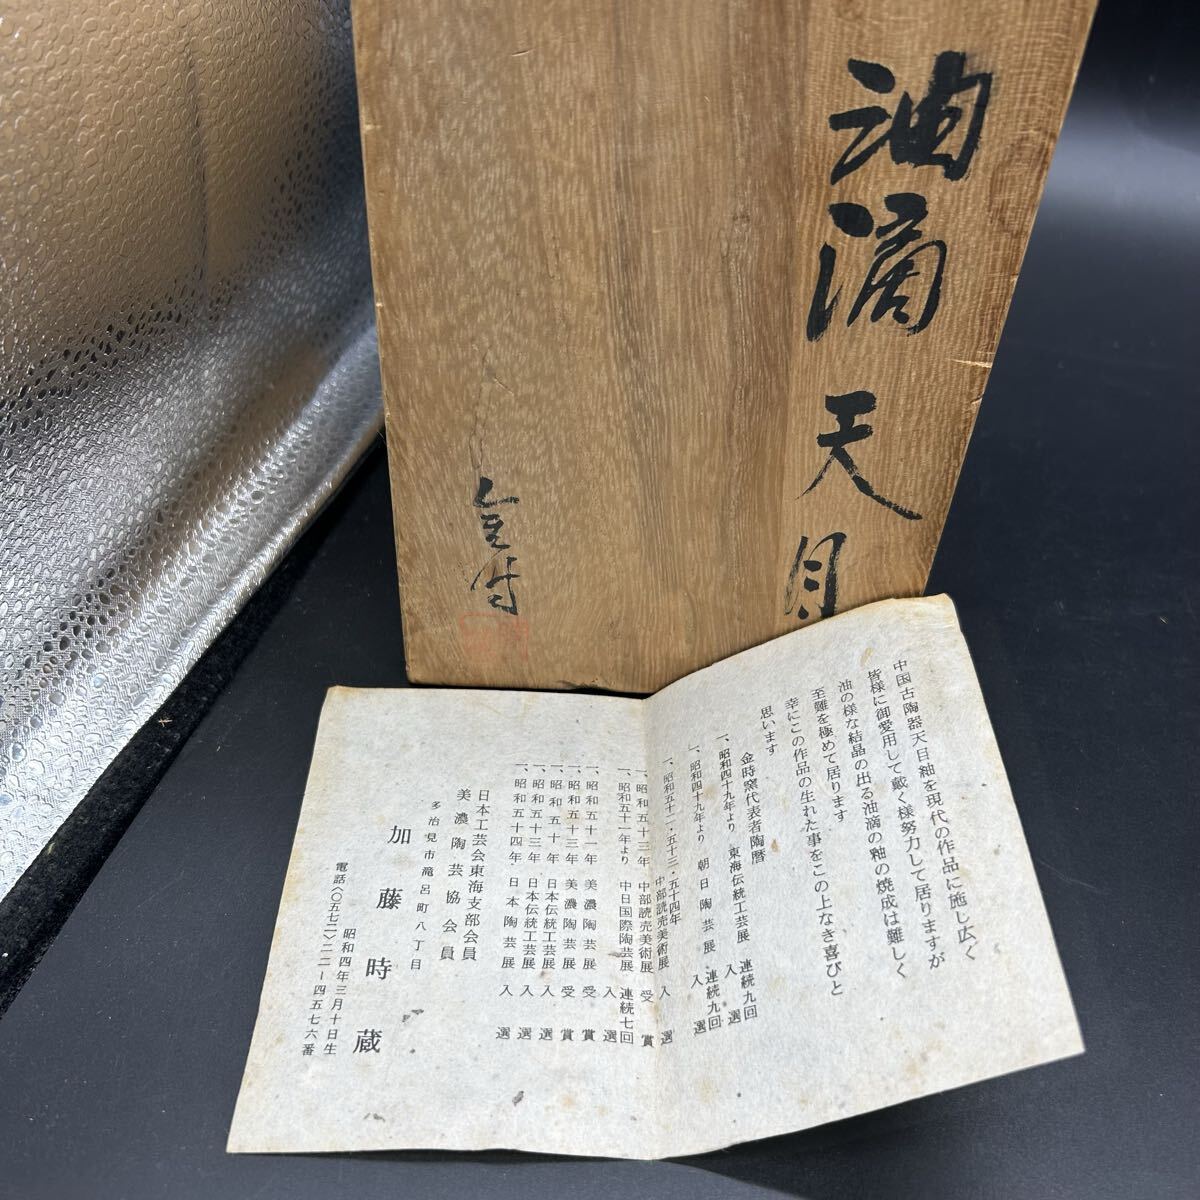 油滴
天目
金时
中国古陶器天目紬を現代の作品に施し広く
皆様に御愛用して戴く様努力して居りますが
油の様な結晶の出る油滴の釉の焼成は難しく
至難を極めて居ります
幸にこの作品の生れた事をこの上なき喜びと
思います
金時窯代表者陶暦
一、昭和四十九年より 東海伝統工芸展 連続九回入選
一、昭和四十九年より 朝日陶芸展 連続九回入選
一、昭和五十二・五十三・五十四年 中部読売美術展 入選
一、昭和五十三年 中部読売美術展 受賞
一、昭和五十一年より 中日国際陶芸展 連続七回入選
一、昭和五十一年 美濃陶芸展 受賞
一、昭和五十三年 美濃陶芸展 受賞
一、昭和五十年 日本伝統工芸展 入選
一、昭和五十三年 日本伝統工芸展 入選
一、昭和五十四年 日本陶芸展 入選
日本工芸会東海支部会員
美濃陶芸協会員
多治見市滝呂町八丁目
加藤時蔵
昭和四年三月十日生
電話〈〇五七二〉二二-四五七六番